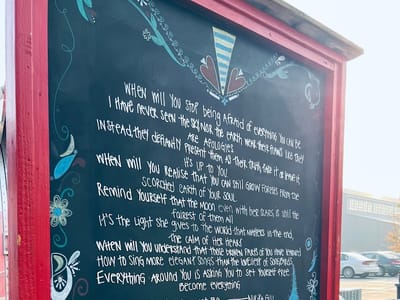 When will you stop being afraid of everything you can be
I have never seen the sky nor the earth wear their flaws like they
are apologies
Instead, they defiantly present them as their truth, take it or leave it
It's up to you
When will you realise that you can still grow forests from the
scorched earth of your soul
Remind yourself that the moon even with her scars is still the
fairest of them all
It's the light she gives to the world that matters in the end,
the calm of her heart
When will you understand that those broken pieces of you have learned
how to sing more elegant songs than the wisest of songbirds,
Everything around you is asking you to set yourself free
Become everything